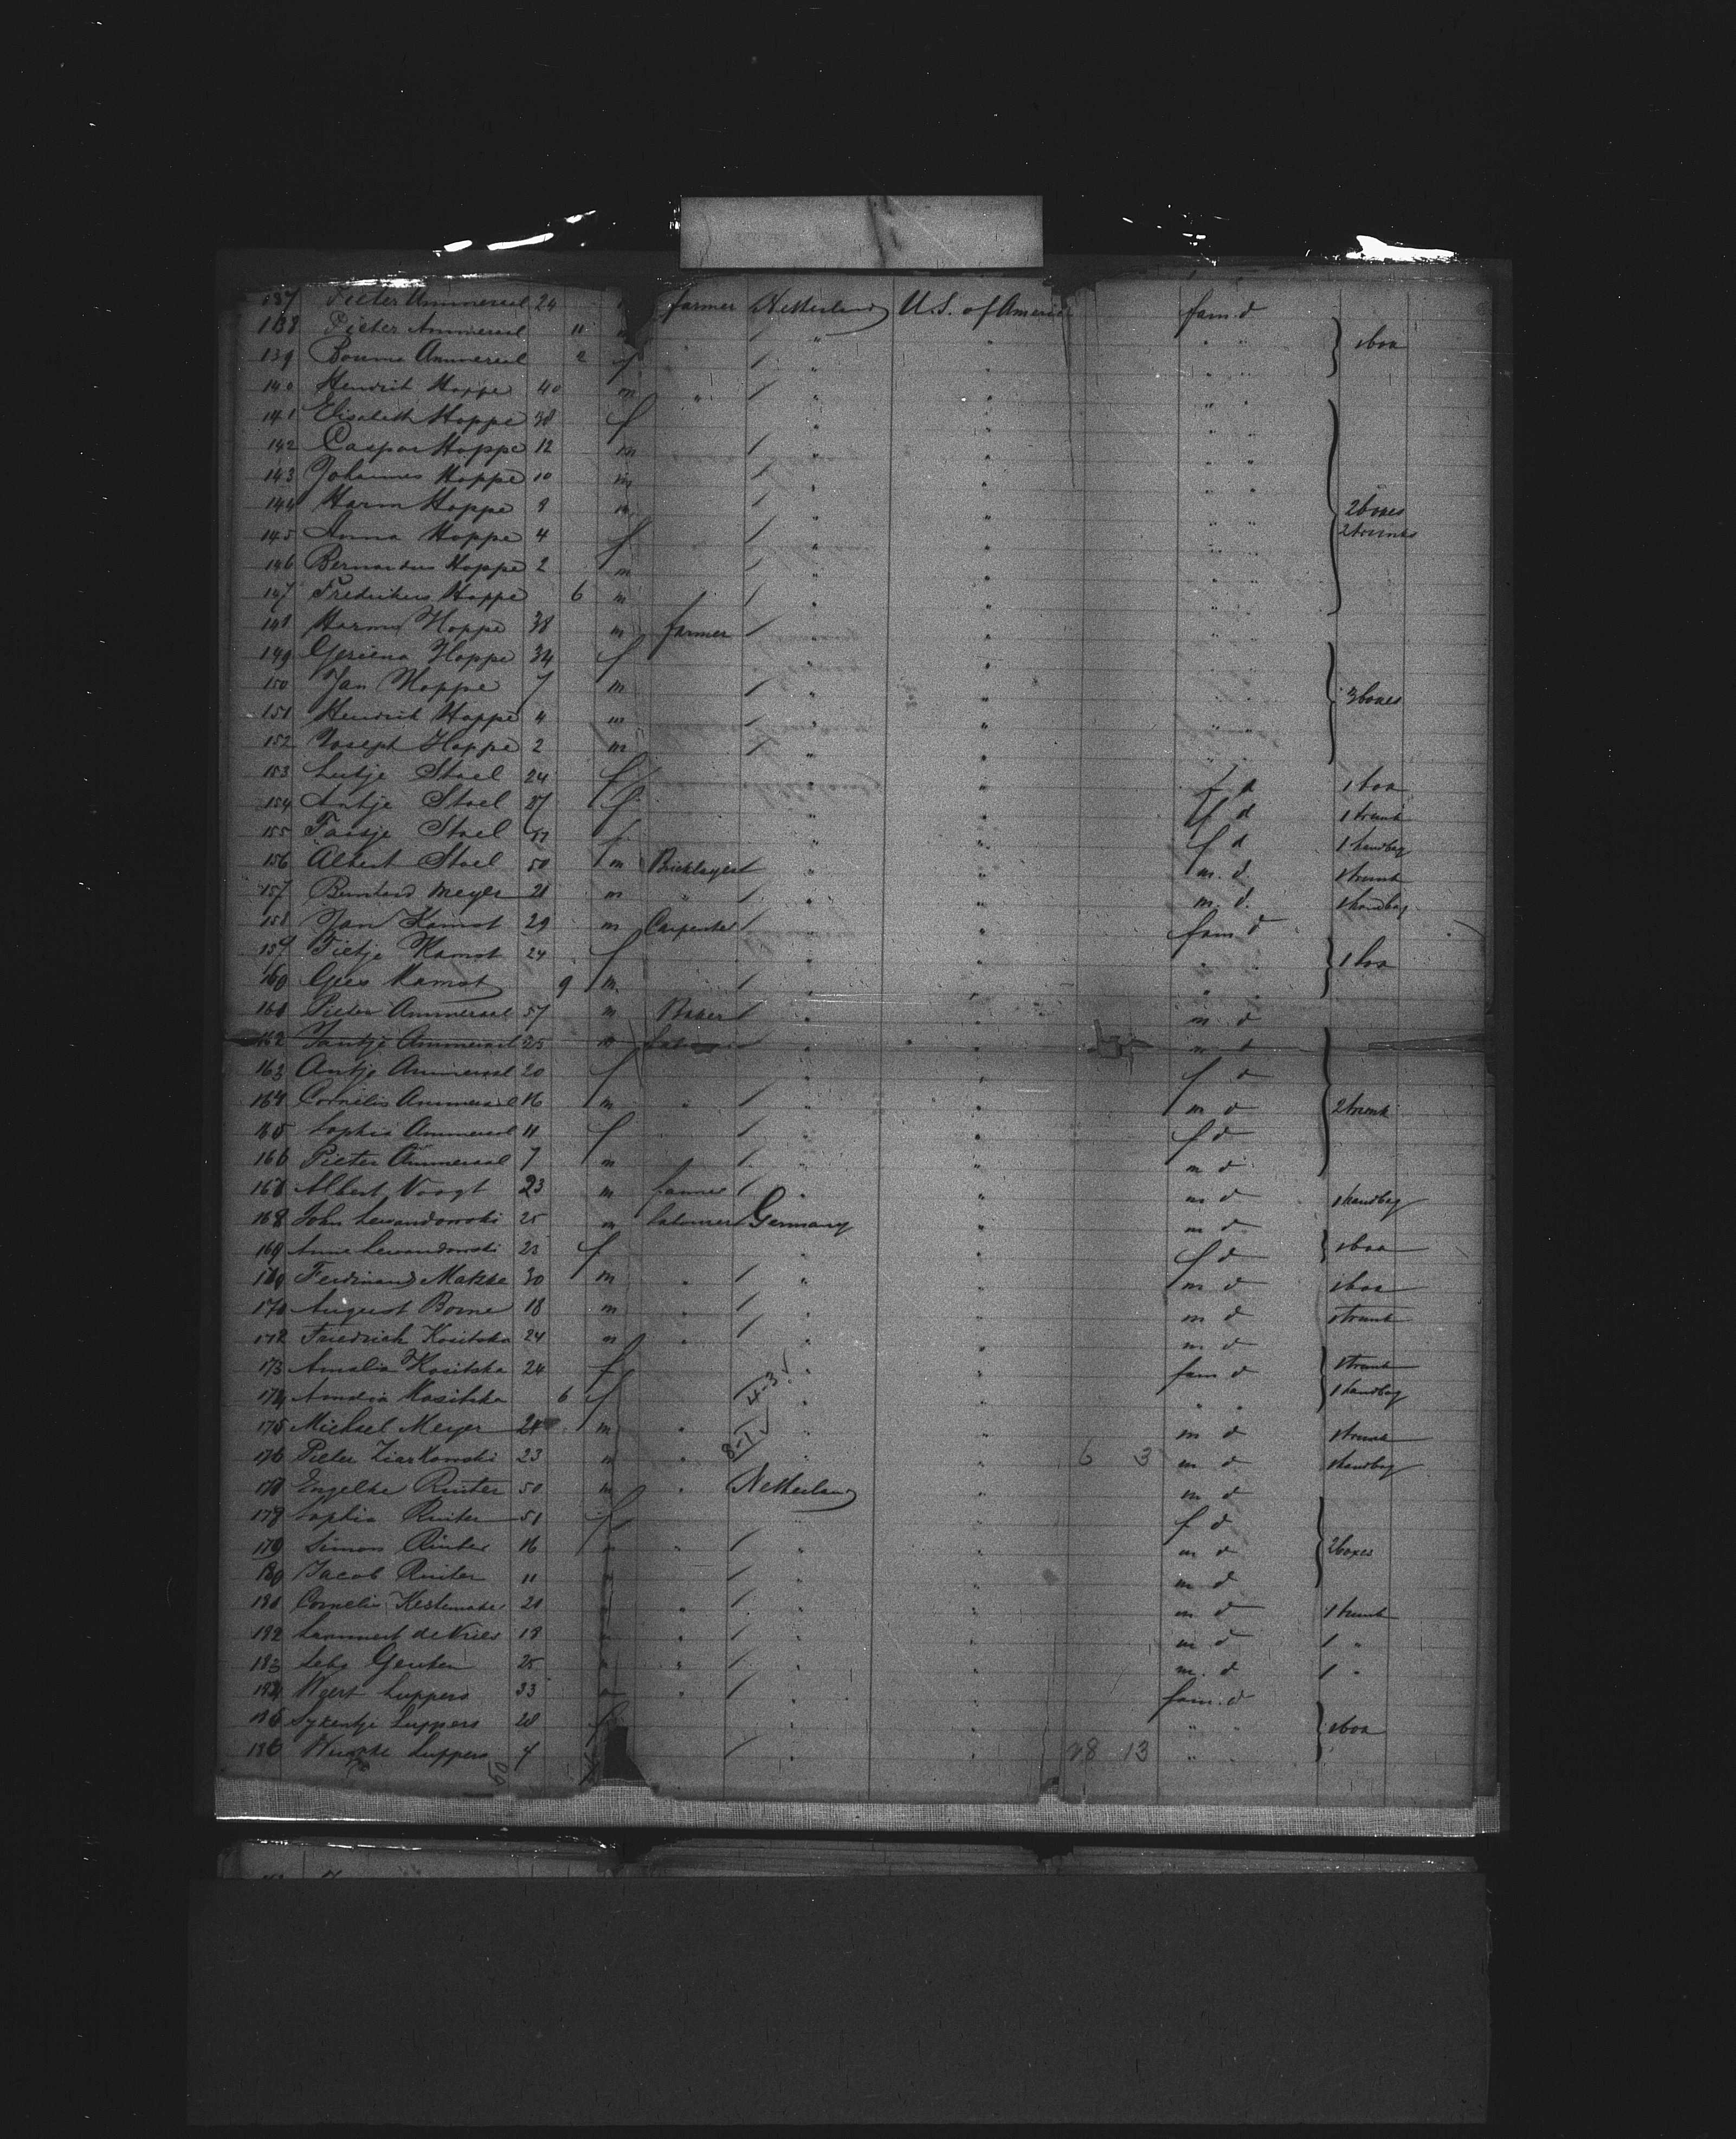 137 Pieter Ammeraal 24 farmer Netherland U.S. of America fam. d
138 Pieter Ammeraal 11 m " " " "
139 Bouwe Ammeraal 2 f " " " " } 1 box
140 Hendrik Hoppe 40 m " " " " "
141 Elisabeth Hoppe 38 f " " " "
142 Caspar Hoppe 12 m " " " "
143 Johannes Hoppe 10 m " " " "
144 Harm Hoppe 9 m " " " " } 2 boxes
145 Anna Hoppe 4 f " " " " 2 trunks
146 Bernardus Hoppe 2 m " " " "
147 Frederikus Hoppe 6 m " " " "
148 Harm Hoppe 38 m farmer " " " "
149 Geriena Hoppe 34 f " " " "
150 Jan Hoppe 7 m " " " " } 3 boxes
151 Hendrik Hoppe 4 m " " " "
152 Joseph Hoppe 2 m " " " "
153 Lutje Stoel 24 f " " f d 1 box
154 Antje Stoel 27 f " " f d 1 trunk
155 Stoel f " " f d 1 handbag
156 Albert Stoel 50 m Bricklayer " " m. d. 1 trunk
157 Meyer 21 m " " " m. d. 1 handbag
158 Jan Kamst 29 m Carpenter " " fam d
159 Tietje Kamst 24 f " " " " } 1 box
160 Kamst 9 m " " " "
161 Pieter Ammeraal 57 m Baker " " m d
162 Jantje Ammeraal 25 m " " m d
163 Antje Ammeraal 20 f " " f d
164 Cornelis Ammeraal 16 m " " " m d } 2 trunk
165 Sophia Ammeraal 11 f " " f d
166 Pieter Ammeraal 7 m " " m d
167 Albert Voogt 23 m farmer " " m d 1 handbag
168 John Lewandowski 25 m labourer Germany " m d
169 Anna Lewandowski 23 f " " f d } 1 box
170 Ferdinand 30 m " " " m d 1 box
171 August Borne 18 m " " " m d 1 trunk
172 Friedrich Kositzka 24 m " " " m d
173 Amalia Kositzka 24 f " " fam d } 1 trunk
174 Kositzka 6 f 4-3 " " " " 1 handbag
175 Michael Meyer m " " " m d 1 trunk
176 Pieter Ziarkowski 23 m " 8-1 " " 6 3 m d 1 handbag
177 Engelke Ruiter 50 m " Netherland " m d
178 Sophia Ruiter 51 f " " f d
179 Simon Ruiter 16 m " " " m d } 2 boxes
180 Jacob Ruiter 11 " " m d
181 Cornelis 21 " " " m d 1 trunk
182 Lammert de Vries 18 " " " m d 1 "
183 25 " " " m. d 1 "
184 Luppers 33 " " " fam. d
185 Luppers 28 f " " } 1 box
186 Luppers 4 " " 28 13 " "